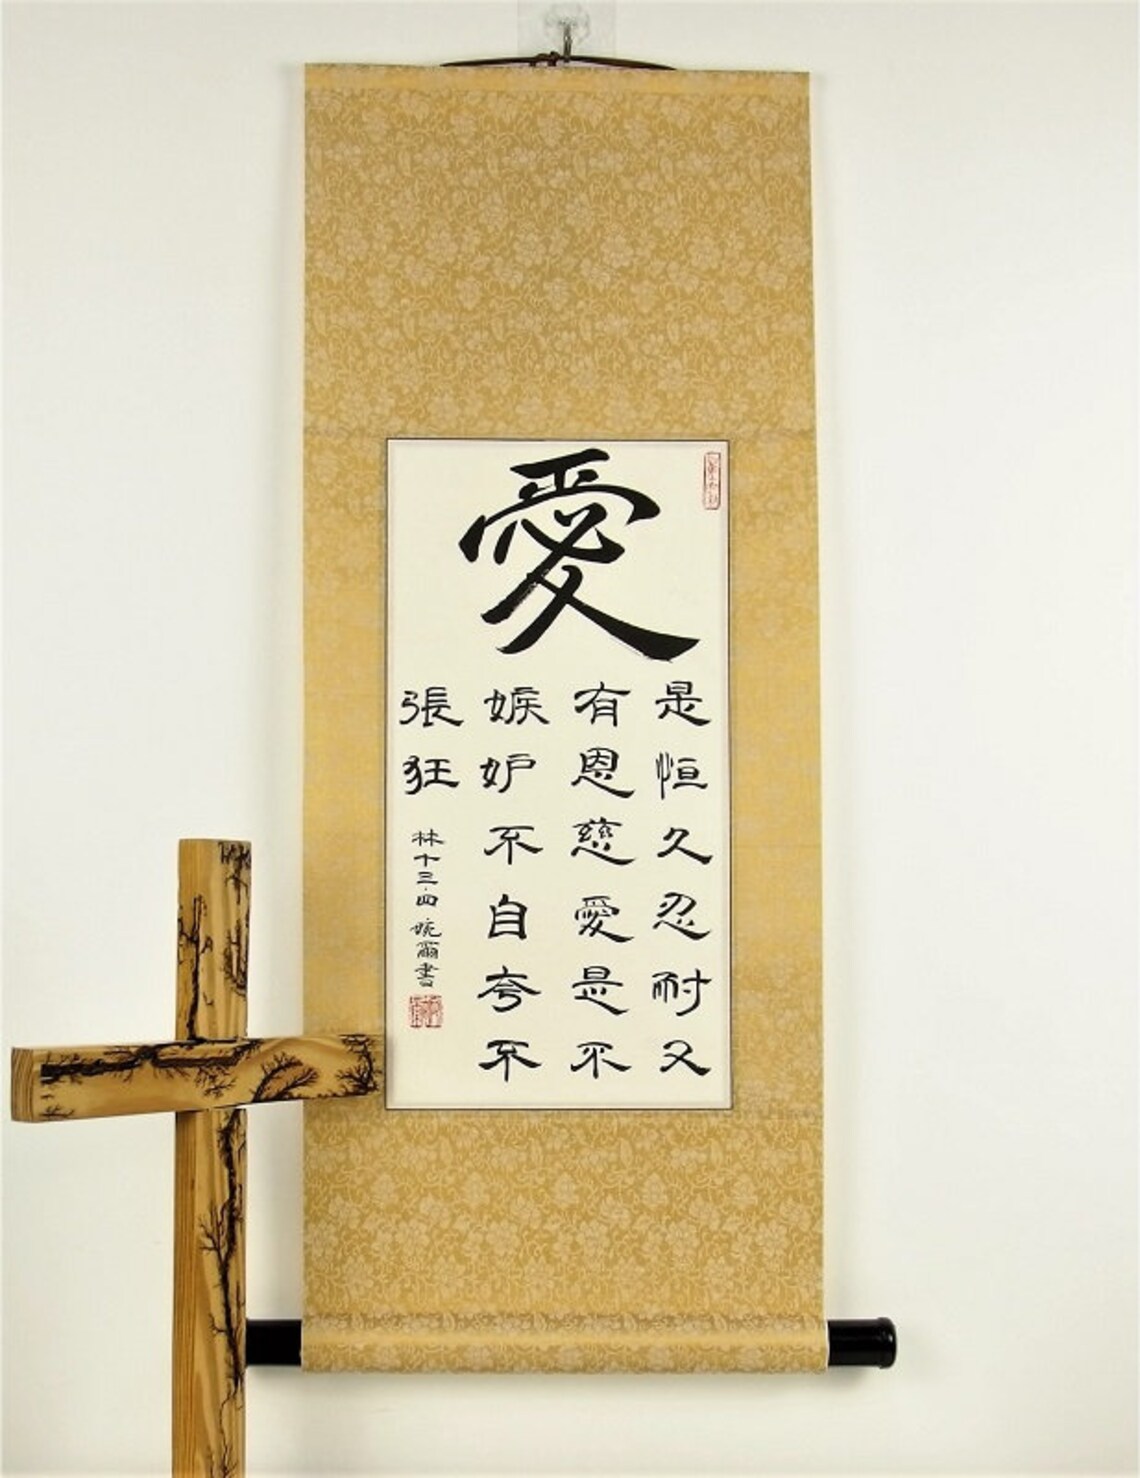 愛
是恒久忍耐又
有恩慈愛是不
嫉妒不自夸不
張狂
林十三.四 婉爾書